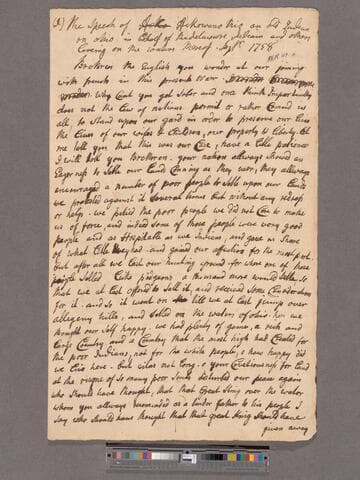 The Speech of Ackowanothio an old Indian
on ohio in Behalf of the delaware Indians and others
Liveing on the waters thereof Sept. 1758
Brethren the English you wonder at our joining
with french in this present war
why Cant you get Sober and once think Impartially
does not the Law of nations permit or rather Comand us
all to Stand upon our gard in order to preserve our lives
the lives of our wifes & Children, our property & Liberty. let
me tell you that this was our Case, have a little patience
I will tell you Brethren. your nation allways Shewd an
Eagerness to Settle our Lands Cunning as they were, they allways
encouraged a number of poor people to Settle upon our Lands
we protested against it Several times but without any redress
or help. we pitied the poor people we did not Care to make
use of force, and indeed Some of those people were very good
people and as Hospitable as we Indians, and gave us Share
of what little they had. and gaind our affection for the most part.
but after all we lost our hunting ground for where one of those
people Settled Like pidgeons a thousand more would Settle, So
that we at last offerd to Sell it, and received Some Consideration
for it. and So it went on till we at last jump over
allegeny hills, and Setled on the waters of ohio. here we
thought our Self happy. we had plenty of game, a rich and
large Country and a Country that the most high had Created for
the poor Indians, not for the white people, o how happy did
we live here. but alas not long, o your Coveteousness for Land
at the risque of So many poor Souls disturbed our peace again
who Should have thought, that that Great King over the water
whom you allways recomended as a tender father to his people I
Say who Should have thought that that great King Should have
given away